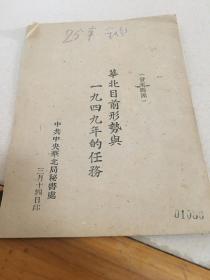 25草
（發至縣團）
華北目前形勢與
一九四九年的任務
中共中央華北局秘書處
三月十四日印
01066